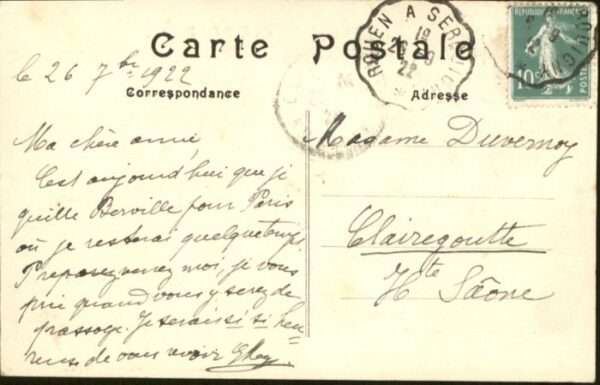 Carte Postale
le 26 7bre 1922
Correspondance
Adresse
ROUEN A SER
22
RÉPUBLIQUE FRANÇAISE
10c
POSTES
Ma chère amie,
C'est aujourd'hui que je
quitte Berville pour Paris
où je resterai quelque temps
Prévenez moi, je vous
prie quand vous y serez de
passage. Je serais si si heu-
reuse de vous revoir
Madame Duvernoy
Clairegoutte
Hte Saône